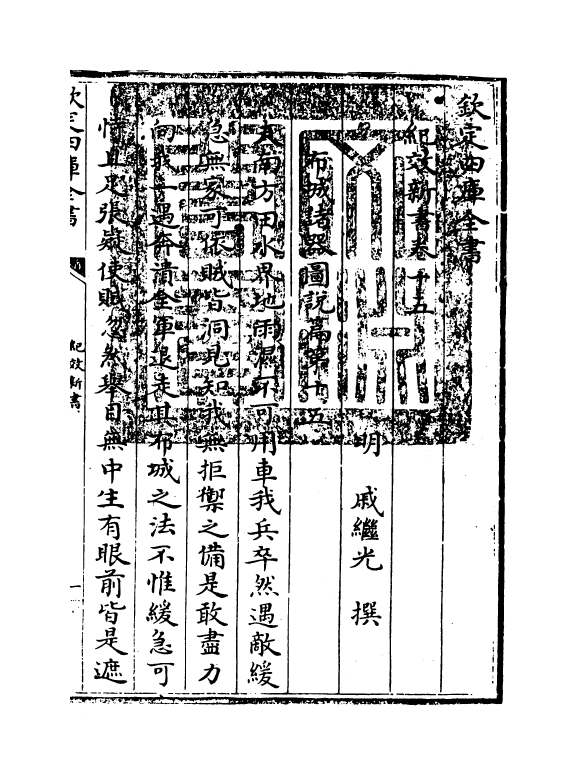 欽定四庫全書
紀效新書卷十五
明 戚繼光 撰
布城諸器圖說篇第十五
夫南方田水界地雨濕不可用車我兵卒然遇敵緩
急無家可依賊皆洞見知我無拒禦之備是敢盡力
向我一遇奔潰全軍退走且布城之法不惟緩急可
恃且足張疑使賊忽然舉目無中生有眼前皆是遮
欽定四庫全書
紀效新書
一